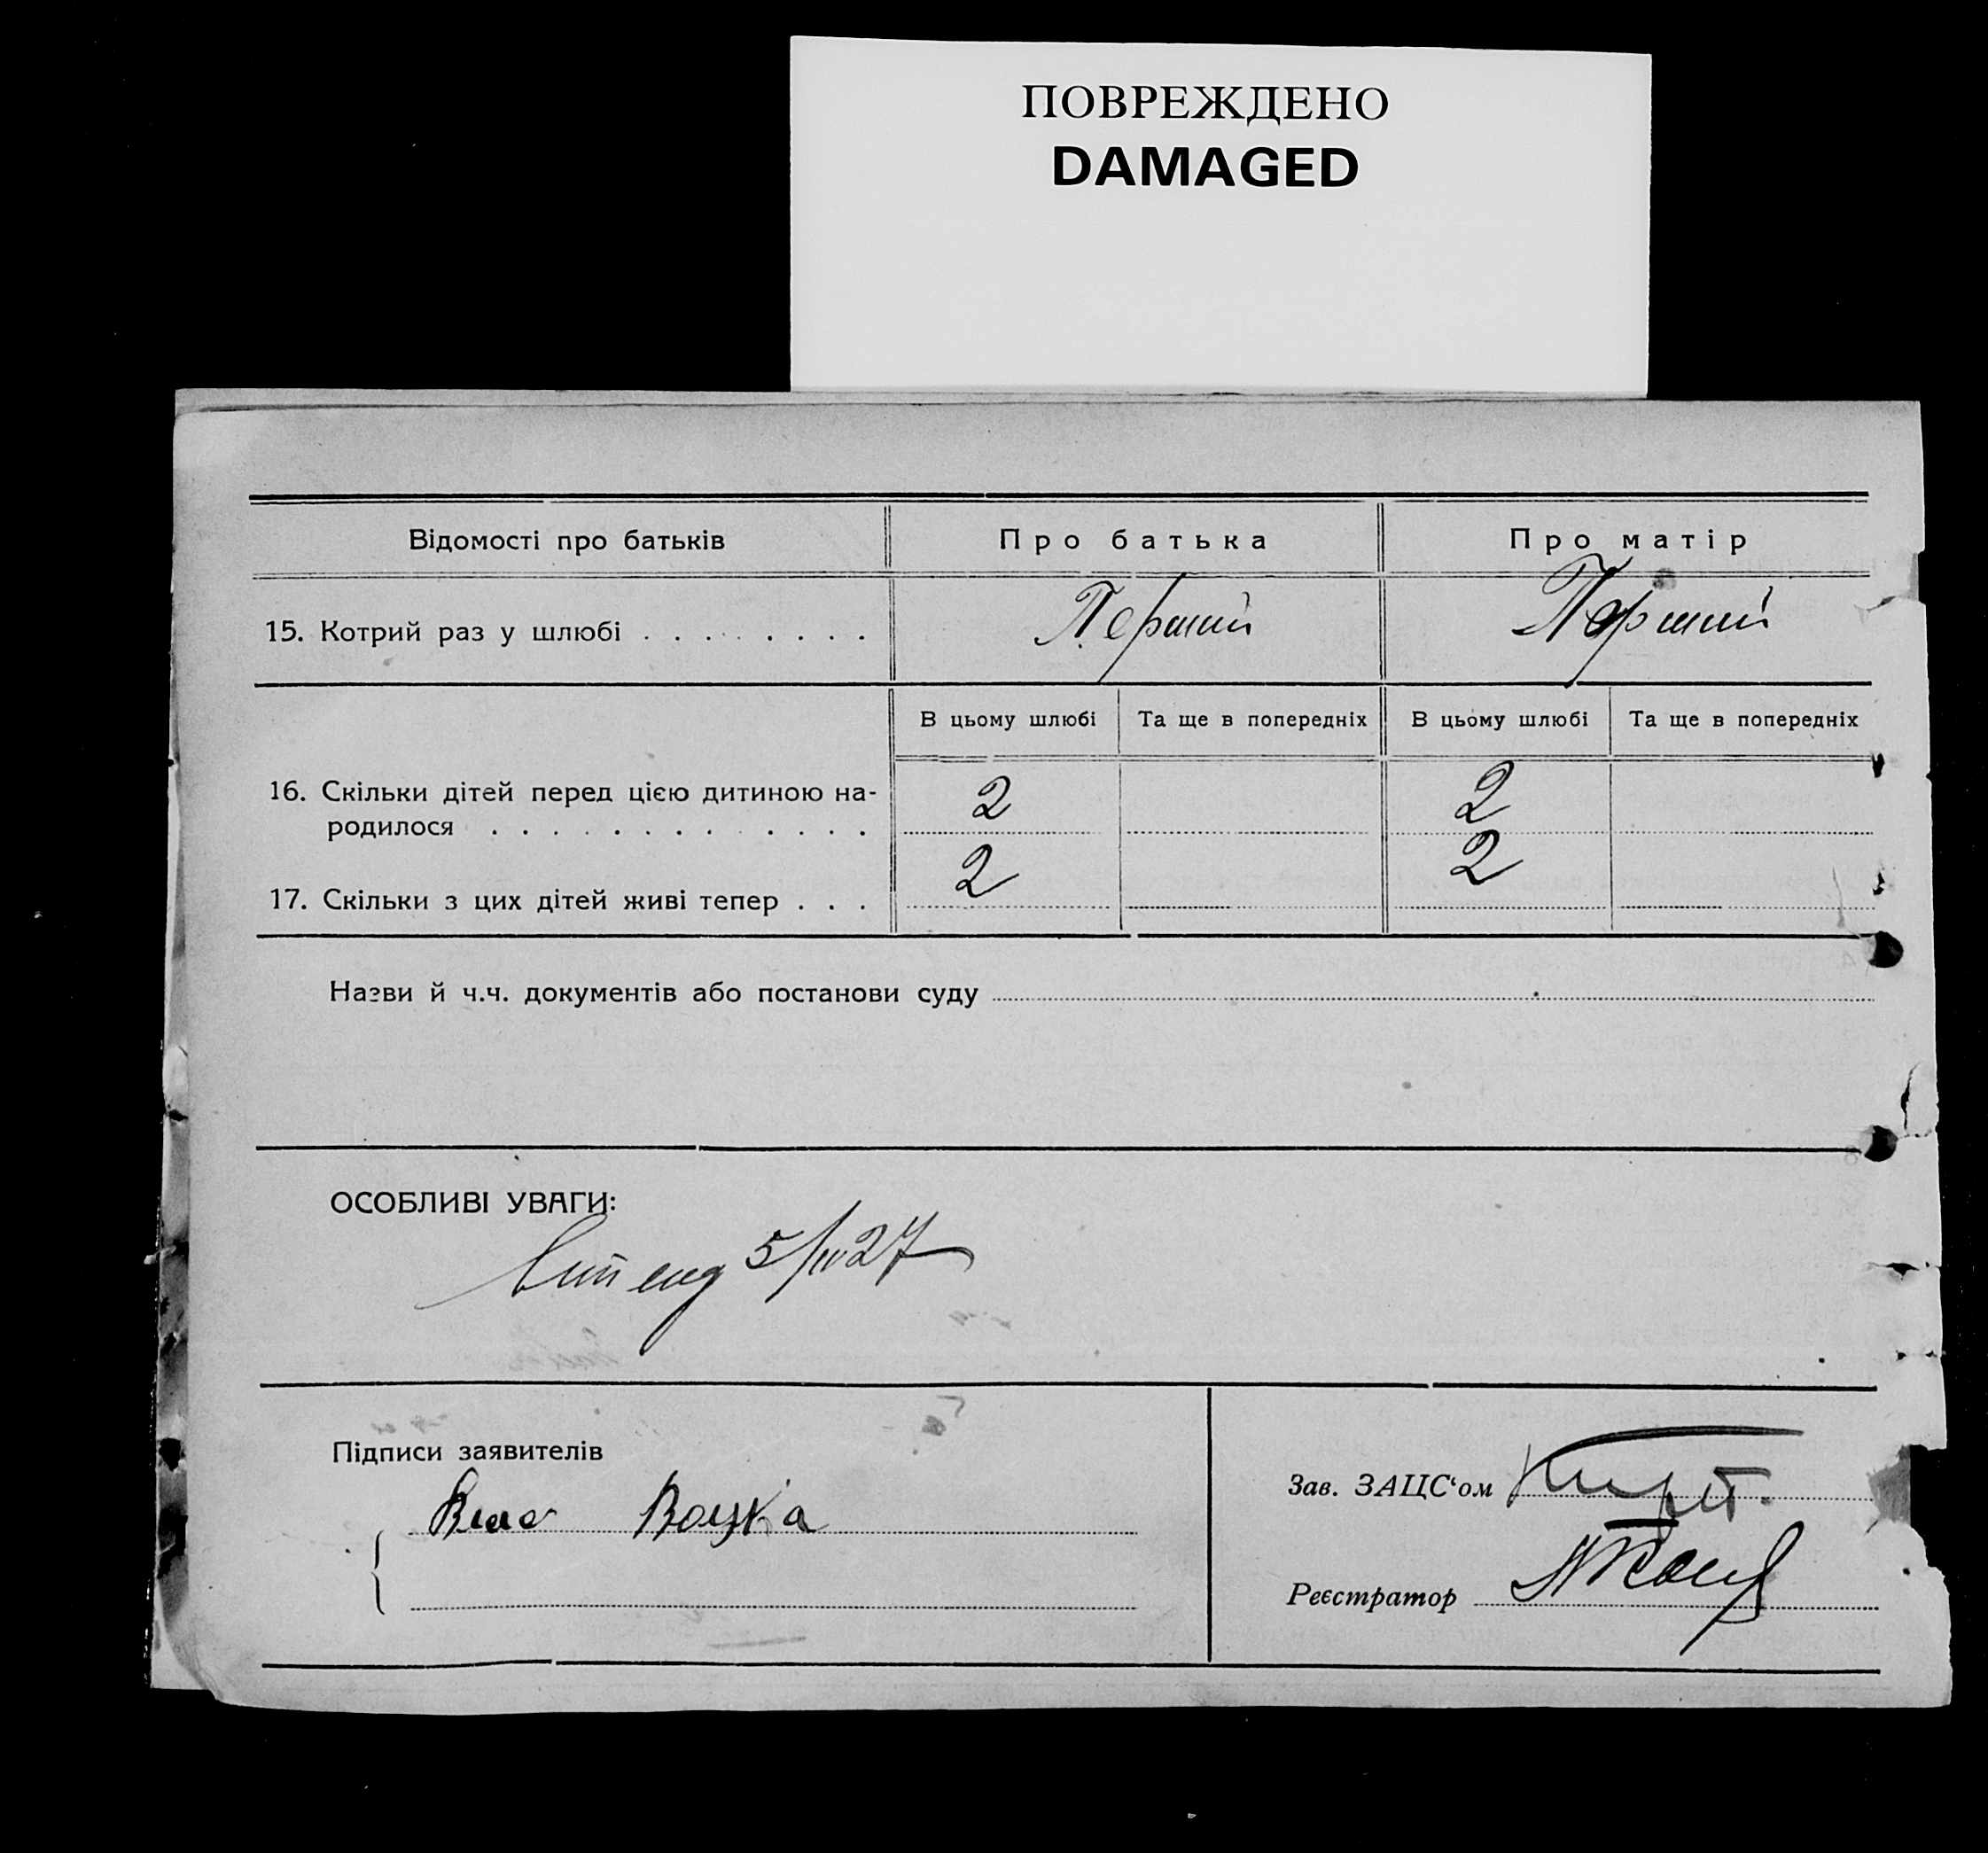 ПОВРЕЖДЕНО
DAMAGED
Відомості про батьків
Про батька
Про матір
15. Котрий раз у шлюбі . . . . . . . .
Перший
Перший
В цьому шлюбі
Та ще в попередніх
В цьому шлюбі
Та ще в попередніх
16. Скільки дітей перед цією дитиною на-
родилося . . . . . . . . . . . . .
2
2
17. Скільки з цих дітей живі тепер . . .
2
2
Назви й ч.ч. документів або постанови суду
ОСОБЛИВІ УВАГИ:
27
Підписи заявителів
Зав. ЗАЦС‘ом
Реєстратор